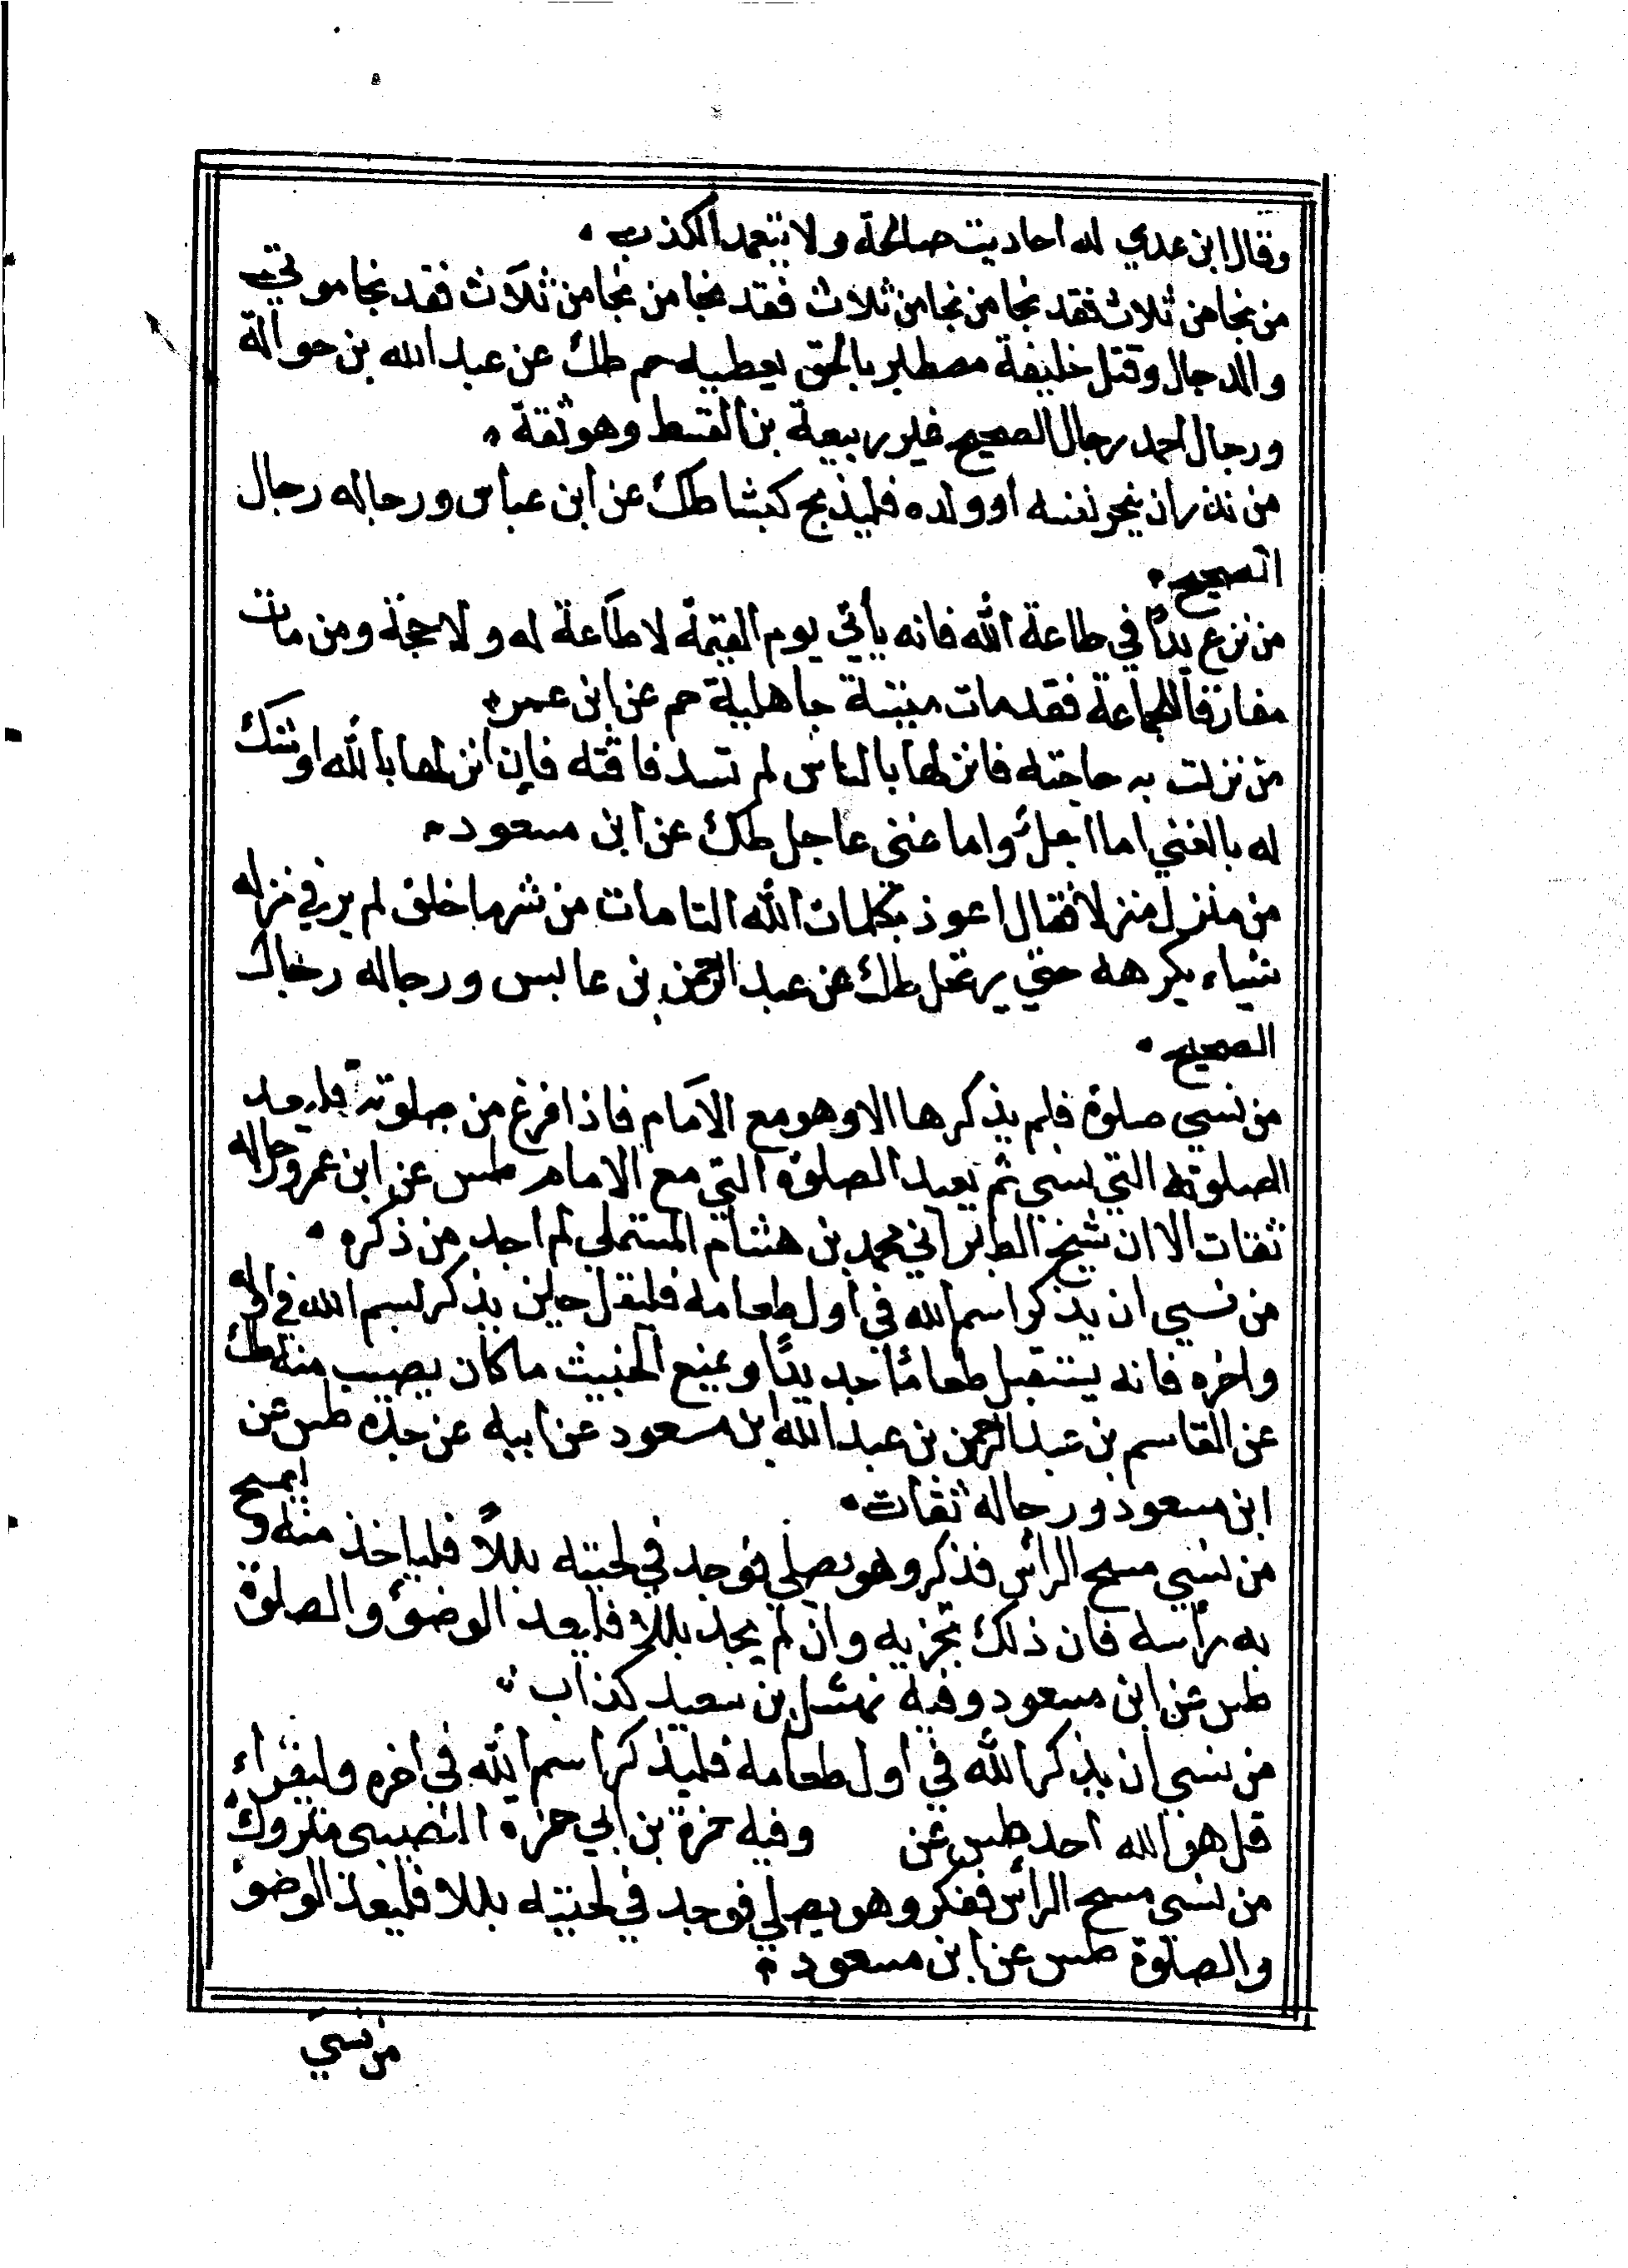 وقال ابن عدي له احاديث صالحة ولا يتعمد الكذب
من نجا من ثلاث فقد نجا من نجا من ثلاث فقد نجا من نجا من ثلاث فقد نجا موتي
والدجال وقتل خليفة مصطبر بالحق يعطيه حم طك عن عبد الله بن حوالة
ورجال احمد رجال الصحيح غير ربيعة بن القسط وهو ثقة
من نذر ان ينحر نفسه او ولده فليذبح كبشا طك عن ابن عباس ورجاله رجال
الصحيح
من نزع يدًا في طاعة الله فانه يأتي يوم القيمة لا طاعة له ولا حجة ومن مات
مفارقا للجماعة فقد مات ميتة جاهلية حم عن ابن عمر
من نزلت به حاجته فانزلها بالناس لم تسد فاقته فان انزلها بالله اوشك
له بالغني اما اجل واما غنى عاجل طك عن ابن مسعود
من منزل منزلا فقال اعوذ بكلمات الله التامات من شر ما خلق لم ير في منزله
شياء يكرهه حتي يرتحل طك عن عبد الرحمن بن عابس ورجاله رجال
الصحيح
من نسي صلوة فلم يذكرها الا وهو مع الامام فاذا فرغ من صلوته فليعد
الصلوة التي نسي ثم يعيد الصلوة التي مع الامام طس عن ابن عمر ورجاله
ثقات الا ان شيخ الطبراني محمد بن هشام المستملي لم اجد من ذكره
من نسي ان يذكر اسم الله في اول طعامه فليقل حين يذكر بسم الله في اوله
واخره فانه يستقبل طعامًا جديدًا ويمنع الخبيث ما كان يصيب منه طك
عن القاسم بن عبد الرحمن بن عبد الله ابن مسعود عن ابيه عن جده طس عن
ابن مسعود ورجاله ثقات
من نسي مسح الرأس فذكر وهو يصلي فوجد في لحيته بللاً فلياخذ منه و ليمسح
به رأسه فان ذلك يجزيه وان لم يجد بللا فليعد الوضوء والصلوة
طس عن ابن مسعود وفيه نهشل بن سعيد كذاب
من نسي ان يذكر الله في اول طعامه فليذكر اسم الله في اخره وليقراء
قل هو الله احد طس عن وفيه حمزة بن ابي حمزه النصيبى متروك
من نسي مسح الرأس ففكر وهو يصلي فوجد في لحيته بللا فليعد الوضو
والصلوة طس عن ابن مسعود
من نسي